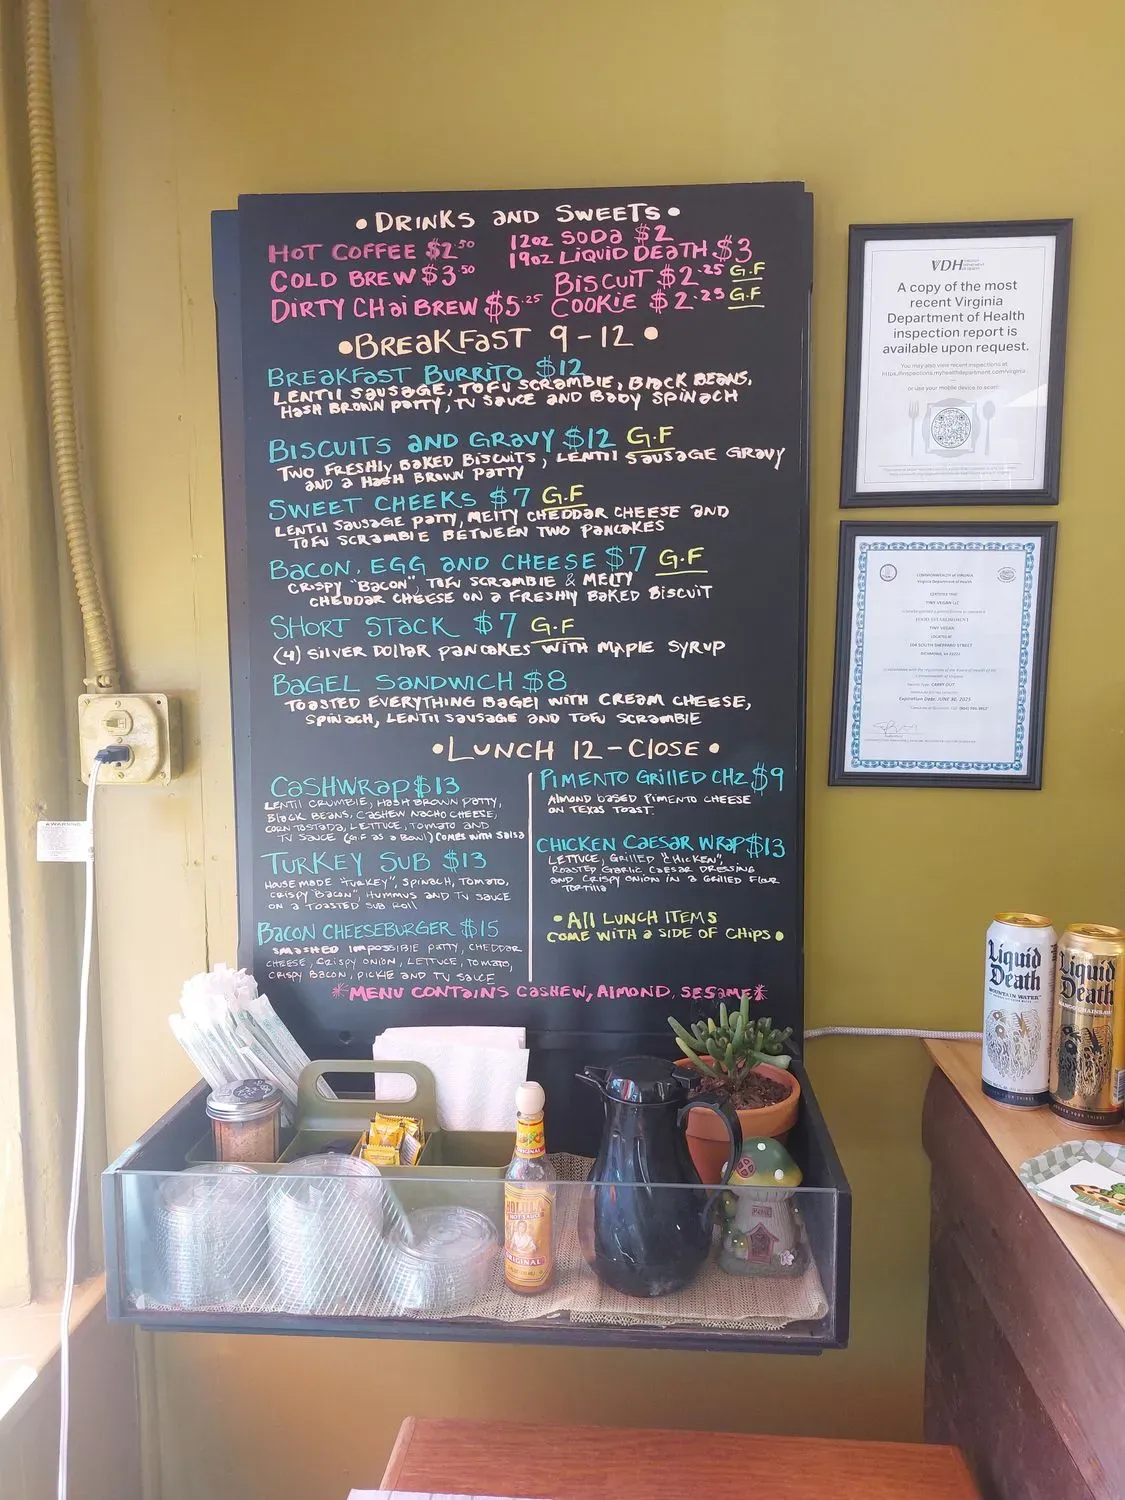 •DRINKS AND SWEETS•
HOT COFFEE $2.50
COLD BREW $3.50
DIRTY CHAI BREW $5.25
12oz SODA $2
19oz LIQUID DEATH $3
BISCUIT $2.25 G.F
COOKIE $2.25 G.F
•BREAKFAST 9-12•
BREAKFAST BURRITO $12
LENTIL SAUSAGE, TOFU SCRAMBLE, BLACK BEANS,
HASH BROWN PATTY, TV SAUCE AND BABY SPINACH
BISCUITS AND GRAVY $12 G.F
TWO FRESHLY BAKED BISCUITS, LENTIL SAUSAGE GRAVY
AND A HASH BROWN PATTY
SWEET CHEEKS $7 G.F
LENTIL SAUSAGE PATTY, MELTY CHEDDAR CHEESE AND
TOFU SCRAMBLE BETWEEN TWO PANCAKES
BACON, EGG AND CHEESE $7 G.F
CRISPY "BACON", TOFU SCRAMBLE & MELTY
CHEDDAR CHEESE ON A FRESHLY BAKED BISCUIT
SHORT STACK $7 G.F
(4) SILVER DOLLAR PANCAKES WITH MAPLE SYRUP
BAGEL SANDWICH $8
TOASTED EVERYTHING BAGEL WITH CREAM CHEESE,
SPINACH, LENTIL SAUSAGE AND TOFU SCRAMBLE
•LUNCH 12-CLOSE•
CASHWRAP $13
LENTIL CRUMBLE, HASH BROWN PATTY,
BLACK BEANS, CASHEW NACHO CHEESE,
CORN TOSTADA, LETTUCE, TOMATO AND
TV SAUCE (G.F AS A BOWL) COMES WITH SALSA
TURKEY SUB $13
HOUSEMADE "TURKEY", SPINACH, TOMATO,
CRISPY "BACON", HUMMUS AND TV SAUCE
ON A TOASTED SUB ROLL
BACON CHEESEBURGER $15
SMASHED IMPOSSIBLE PATTY, CHEDDAR
CHEESE, CRISPY ONION, LETTUCE, TOMATO,
CRISPY BACON, PICKLE AND TV SAUCE
PIMENTO GRILLED CHZ $9
ALMOND BASED PIMENTO CHEESE
ON TEXAS TOAST.
CHICKEN CAESAR WRAP $13
LETTUCE, GRILLED "CHICKEN",
ROASTED GARLIC CAESAR DRESSING
AND CRISPY ONION IN A GRILLED FLOUR
TORTILLA
•ALL LUNCH ITEMS
COME WITH A SIDE OF CHIPS•
*MENU CONTAINS CASHEW, ALMOND, SESAME*
VDH
A copy of the most
recent Virginia
Department of Health
inspection report is
available upon request.
You may also view recent inspections at
https://inspections.myhealthdepartment.com/virginia
or use your mobile device to scan:
COMMONWEALTH of VIRGINIA
Virginia Department of Health
CERTIFIES THAT
TINY VEGAN LLC
FOOD ESTABLISHMENT
TINY VEGAN
LOCATED AT
104 SOUTH SHEPPARD STREET
RICHMOND, VA 23221
CARRY OUT
Expiration Date: JUNE 30, 2025
Liquid
Death
MOUNTAIN WATER
Liquid
Death
MANGO CHAINSAW
WARNING
ORIGINAL
CHOLULA
HOT SAUCE
ORIGINAL